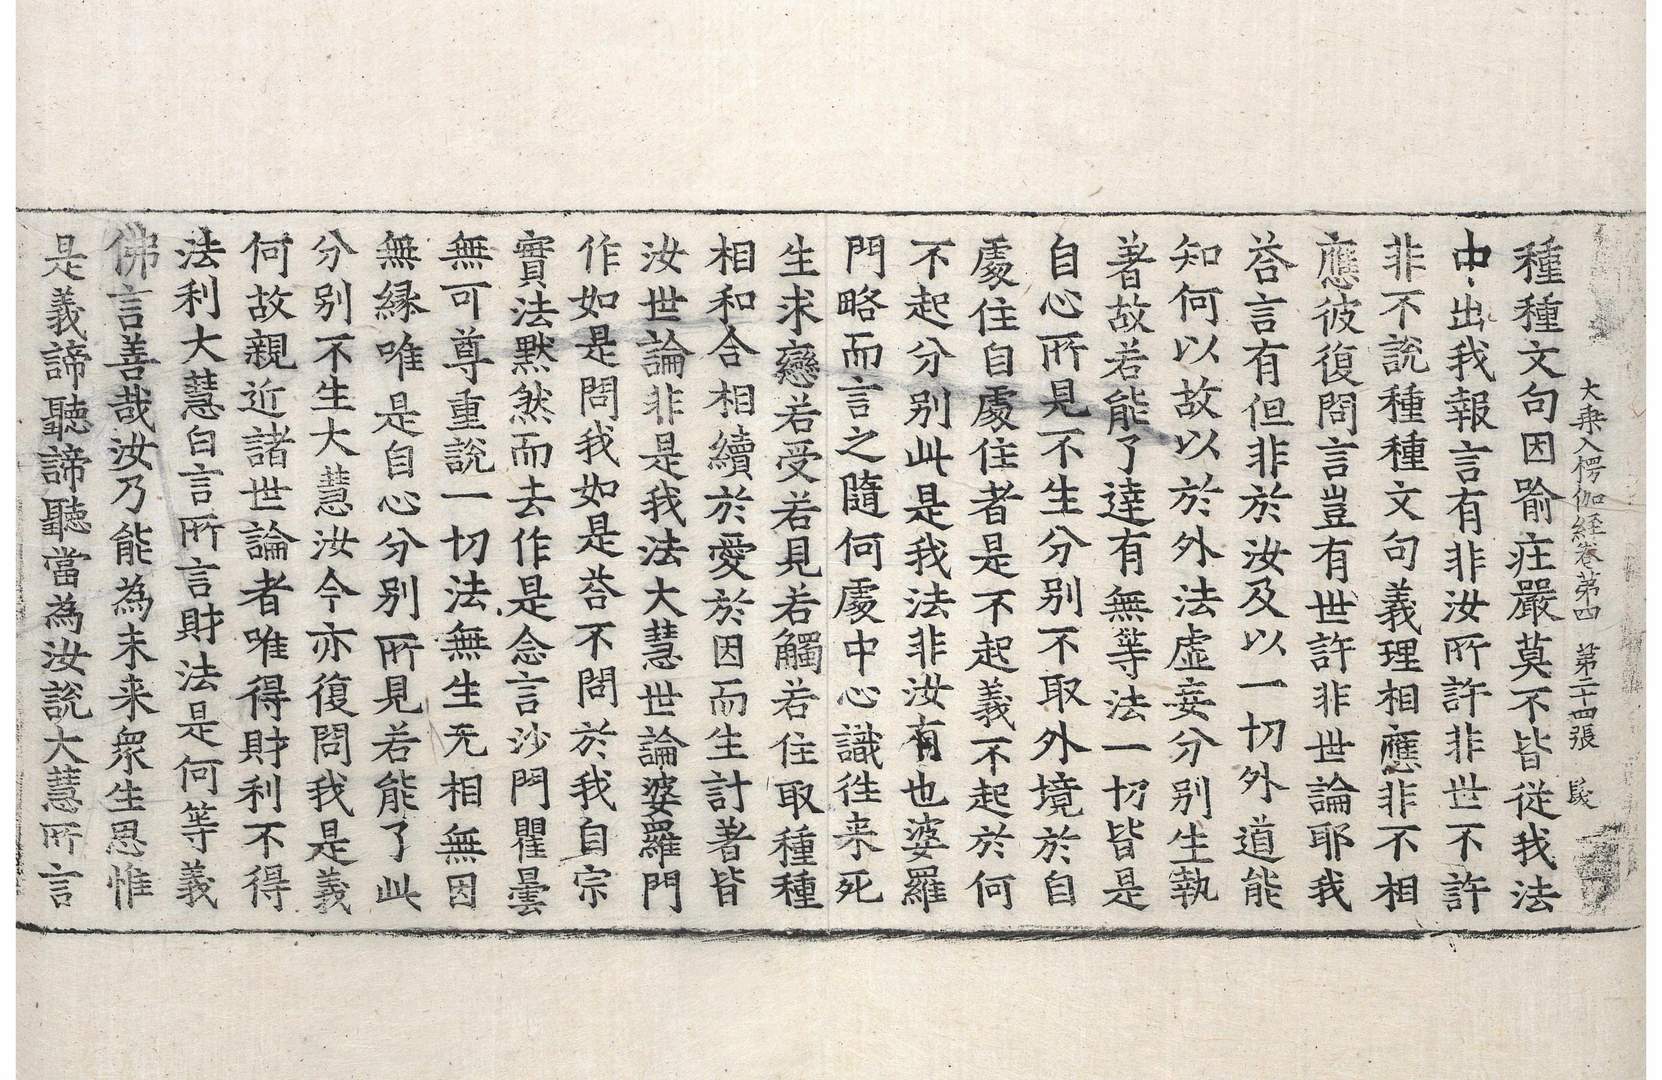 大乗入愣伽経卷第四 第二十四張
種種文句因喻庄嚴莫不皆從我法
中出我報言有非汝所許非世不許
非不說種種文句義理相應非不相
應彼復問言豈有世許非世論耶我
荅言有但非於汝及以一切外道能
知何以故以於外法虛妄分別生執
著故若能了達有無等法一切皆是
自心所見不生分別不取外境於自
處住自處住者是不起義不起於何
不起分別此是我法非汝有也婆羅
門略而言之隨何處中心識徃来死
生求戀若受若見若觸若住取種種
相和合相續於愛於因而生計著皆
汝世論非是我法大慧世論婆羅門
作如是問我如是荅不問於我自宗
實法默然而去作是念言沙門瞿曇
無可尊重說一切法無生无相無因
無縁唯是自心分別所見若能了此
分別不生大慧汝今亦復問我是義
何故親近諸世論者唯得財利不得
法利大慧白言所言財法是何等義
佛言善哉汝乃能為未来衆生思惟
是義諦聽諦聽當為汝說大慧所言